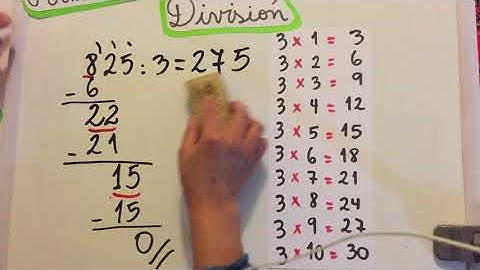 División
825:3=275
- 6
22
- 21
15
- 15
0//
3 × 1 = 3
3 × 2 = 6
3 × 3 = 9
3 × 4 = 12
3 × 5 = 15
3 × 6 = 18
3 × 7 = 21
3 × 8 = 24
3 × 9 = 27
3 × 10 = 30